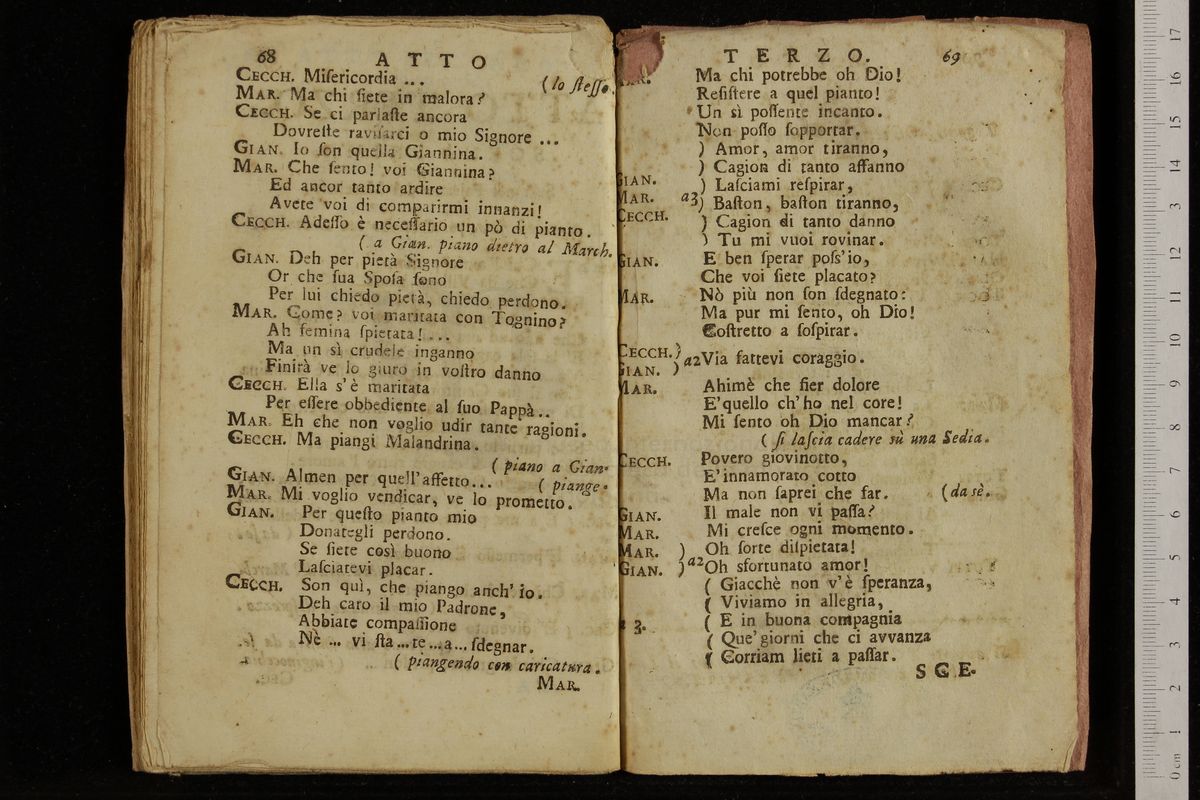 68 ATTO
CECCH. Miſericordia ... (lo ſteſſo.
MAR. Ma chi ſiete in malora?
CECCH. Se ci parlaſte ancora
Dovreſte raviſarci o mio Signore ...
GIAN. Io ſon quella Giannina.
MAR. Che ſento! voi Giannina?
Ed ancor tanto ardire
Avete voi di comparirmi innanzi!
CECCH. Adeſſo è neceſſario un pò di pianto.
( a Gian. piano dietro al March.
GIAN. Deh per pietà Signore
Or che ſua Spoſa ſono
Per lui chiedo pietà, chiedo perdono.
MAR. Come? voi maritata con Tognino?
Ah femina ſpietata! ...
Ma un sì crudele inganno
Finirà ve lo giuro in voſtro danno
CECCH. Ella s'è maritata
Per eſſere obbediente al ſuo Pappà..
MAR. Eh che non voglio udir tante ragioni.
CECCH. Ma piangi Malandrina.
( piano a Gian.
GIAN. Almen per quell'affetto... ( piange.
MAR. Mi voglio vendicar, ve lo prometto.
GIAN. Per queſto pianto mio
Donategli perdono.
Se ſiete così buono
Laſciatevi placar.
CECCH. Son quì, che piango anch'io.
Deh caro il mio Padrone,
Abbiate compaſſione
Nè ... vi ſta...te...a... ſdegnar.
( piangendo con caricatura.
MAR.
TERZO. 69
Ma chi potrebbe oh Dio!
Reſiſtere a quel pianto!
Un sì poſſente incanto.
Non poſſo ſopportar.
) Amor, amor tiranno,
) Cagion di tanto affanno
GIAN. ) Laſciami reſpirar,
MAR. a3) Baſton, baſton tiranno,
CECCH. ) Cagion di tanto danno
) Tu mi vuoi rovinar.
GIAN. E ben ſperar poſs'io,
Che voi ſiete placato?
MAR. Nò più non ſon ſdegnato:
Ma pur mi ſento, oh Dio!
Coſtretto a ſoſpirar.
CECCH. )
GIAN. ) a2 Via fattevi coraggio.
MAR. Ahimè che fier dolore
E'quello ch'ho nel core!
Mi ſento oh Dio mancar?
( ſi laſcia cadere sù una Sedia.
CECCH. Povero giovinotto,
E'innamorato cotto
Ma non ſaprei che far. (da sè.
GIAN. Il male non vi paſſa?
MAR. Mi creſce ogni momento.
MAR. ) Oh ſorte diſpietata!
GIAN. ) a2 Oh sfortunato amor!
( Giacchè non v'è ſperanza,
( Viviamo in allegria,
a 3. ( E in buona compagnia
( Que'giorni che ci avvanza
( Corriam lieti a paſſar.
SCE.